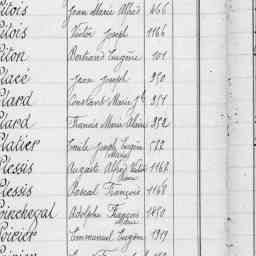 Pitois Jean Marie Alfred 466
Pitois Victor Joseph 1166
Piton Bertrand Eugène 101
Placé Jean Joseph 950
Plard Constant Marie Jh 951
Plard Francis Marie Alexis 952
Platier Emile Joseph Eugène 582
Marie
Plessis Auguste Alfred Victor 1167
Marie
Plessis Pascal François 1168
Poinchegal Adolphe François 1450
Marie
Poirier Emmanuel Eugène 1919